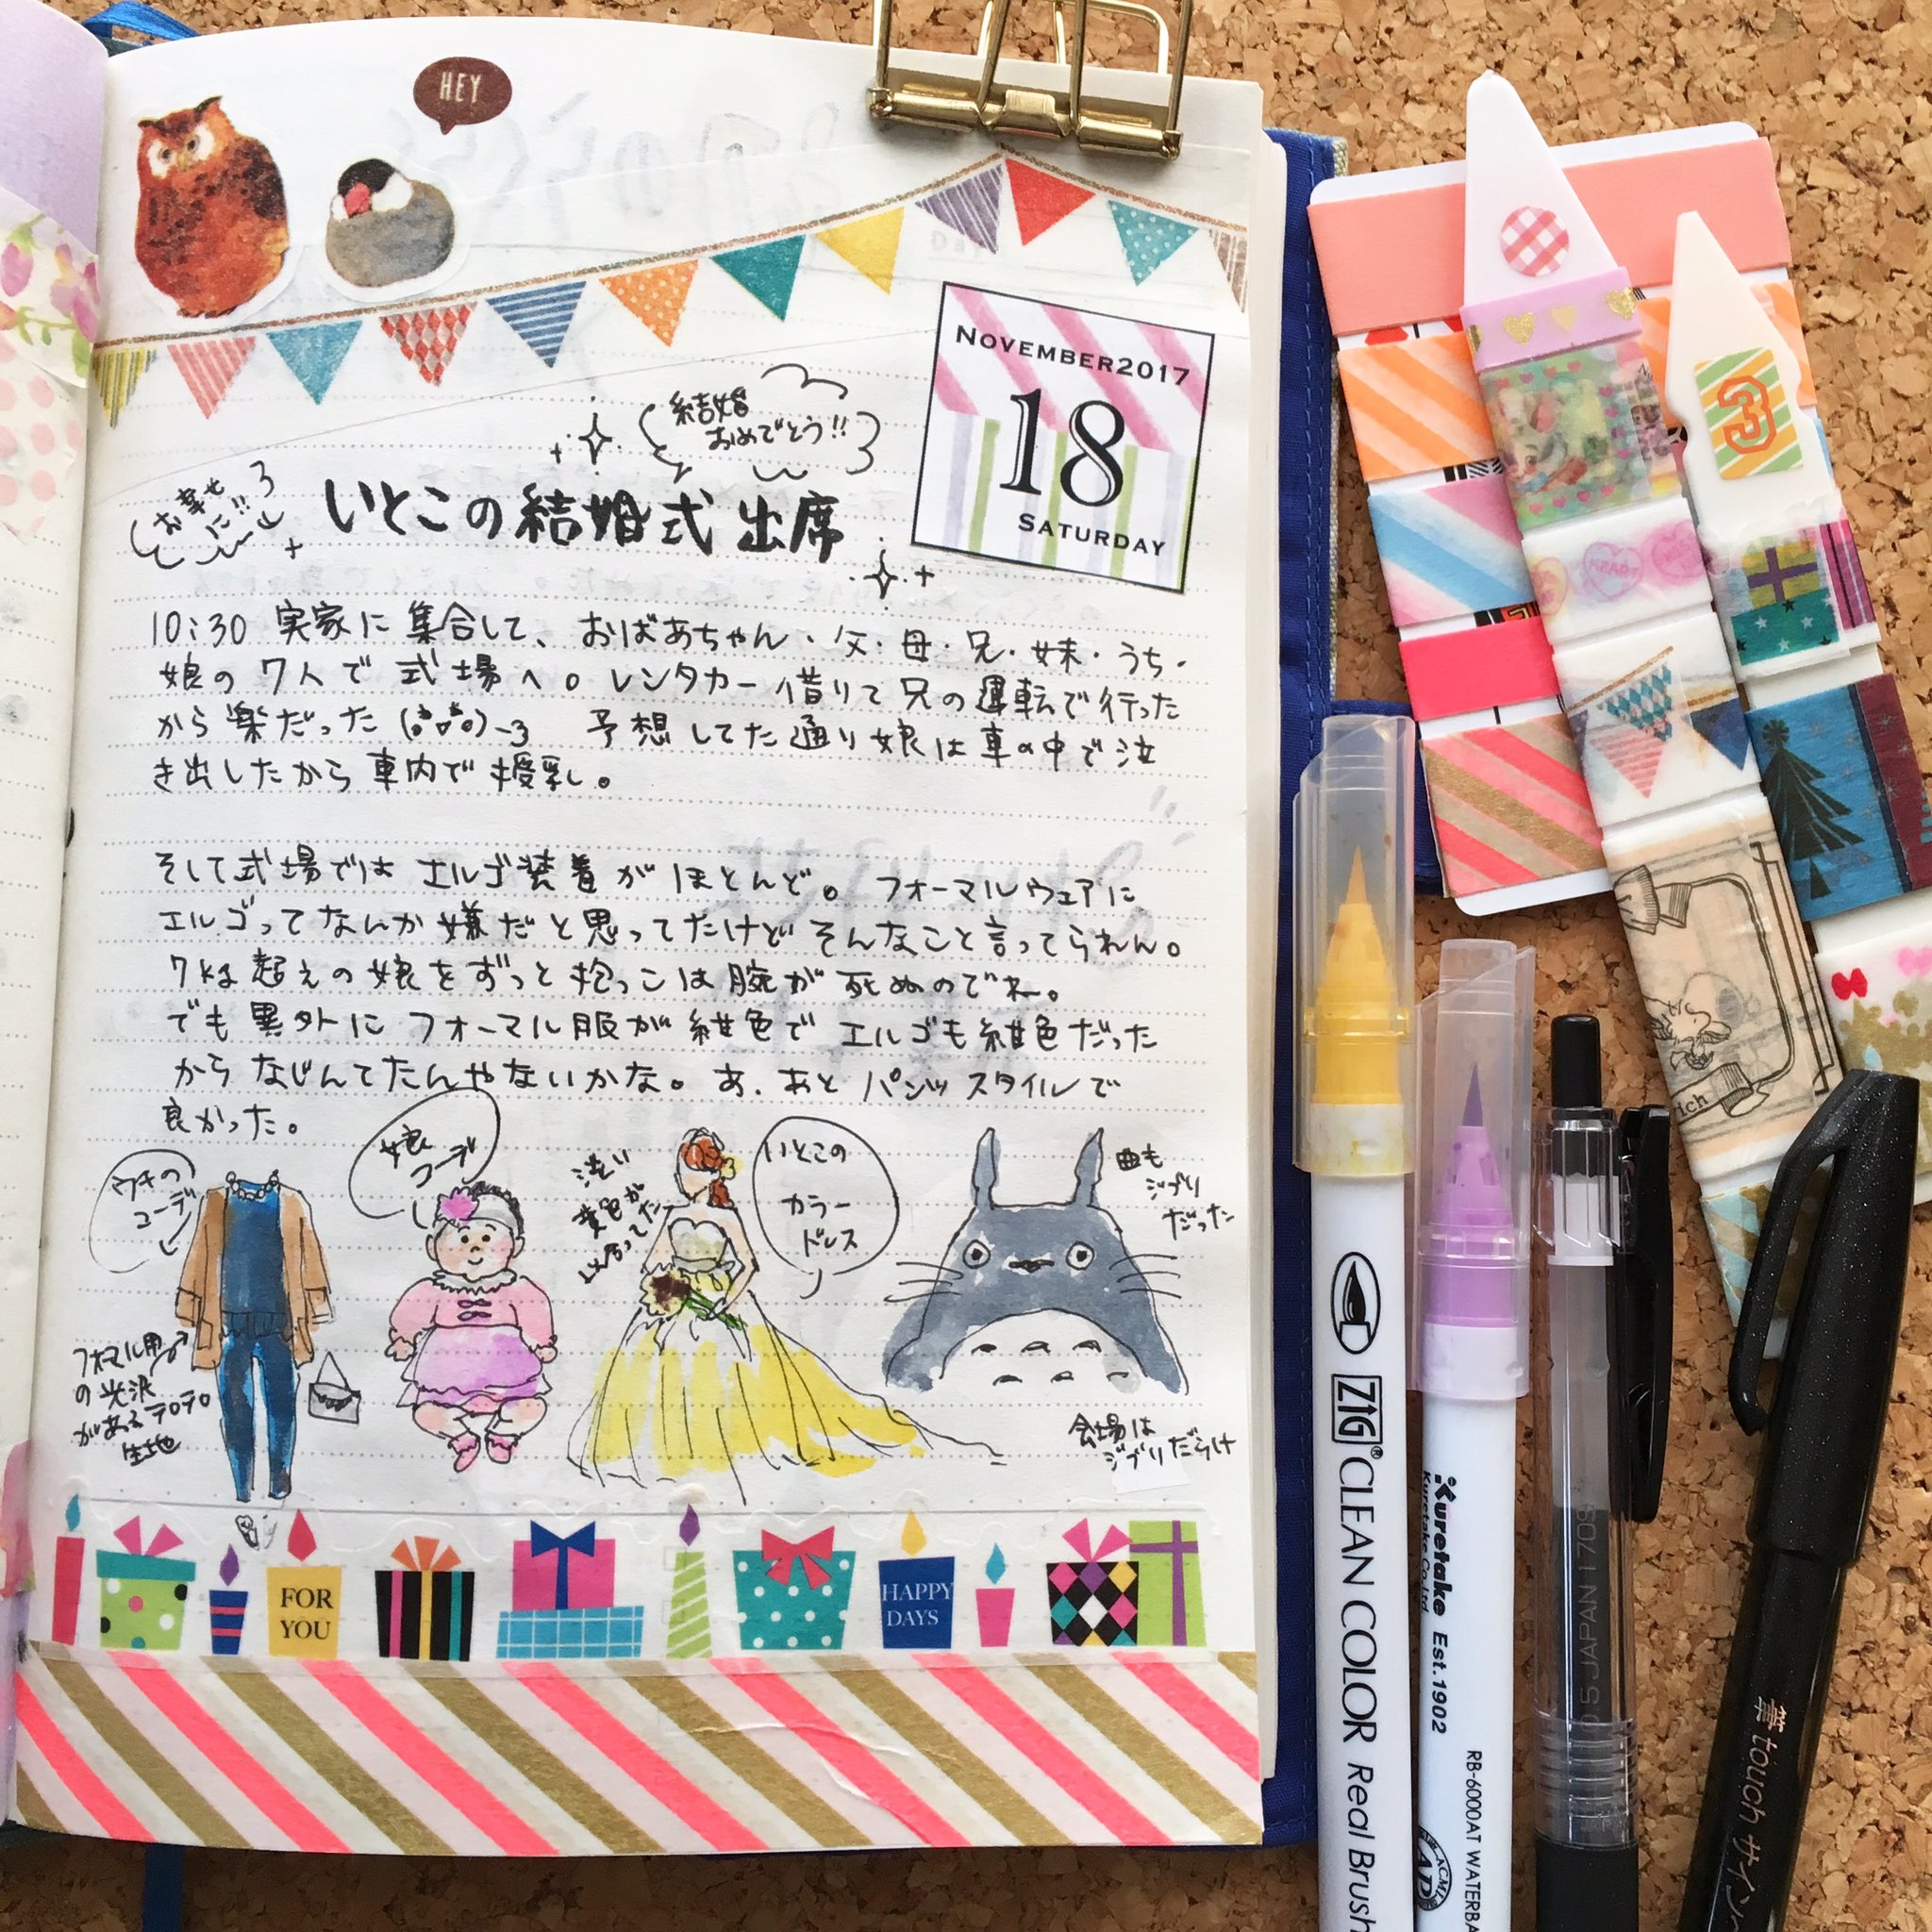 HEY
NOVEMBER2017
18
SATURDAY
結婚
おめでとう!!
お幸せ
に!!
いとこの結婚式 出席
10:30 実家に集合して、おばあちゃん・父・母・兄・妹・うち・
娘の7人で式場へ。レンタカー借りて兄の運転で行った
から楽だった
予想してた通り娘は車の中で泣
き出したから車内で授乳。
そして式場ではエルゴ装着がほとんど。フォーマルウェアに
エルゴってなんか嫌だと思ってたけどそんなこと言ってられん。
7kg超えの娘をずっと抱っこは腕が死ぬのでネ。
でも異外にフォーマル服が紺色でエルゴも紺色だった
からなじんでたんやないかな。あ、あとパンツスタイルで
良かった。
ウチの
コーデ
娘
コーデ
渋い
黄色が
似合ってた
いとこの
カラー
ドレス
曲も
ジブリ
だった
フォーマル用
の光沢
があるテロテロ
生地
会場は
ジブリだらけ
FOR
YOU
HAPPY
DAYS
3
HEART
ZIG CLEAN COLOR Real Brush
Kuretake Est.1902
Kuretake Co.,Ltd.
RB-6000AT WATERBA
JAPAN
筆touch サインペン